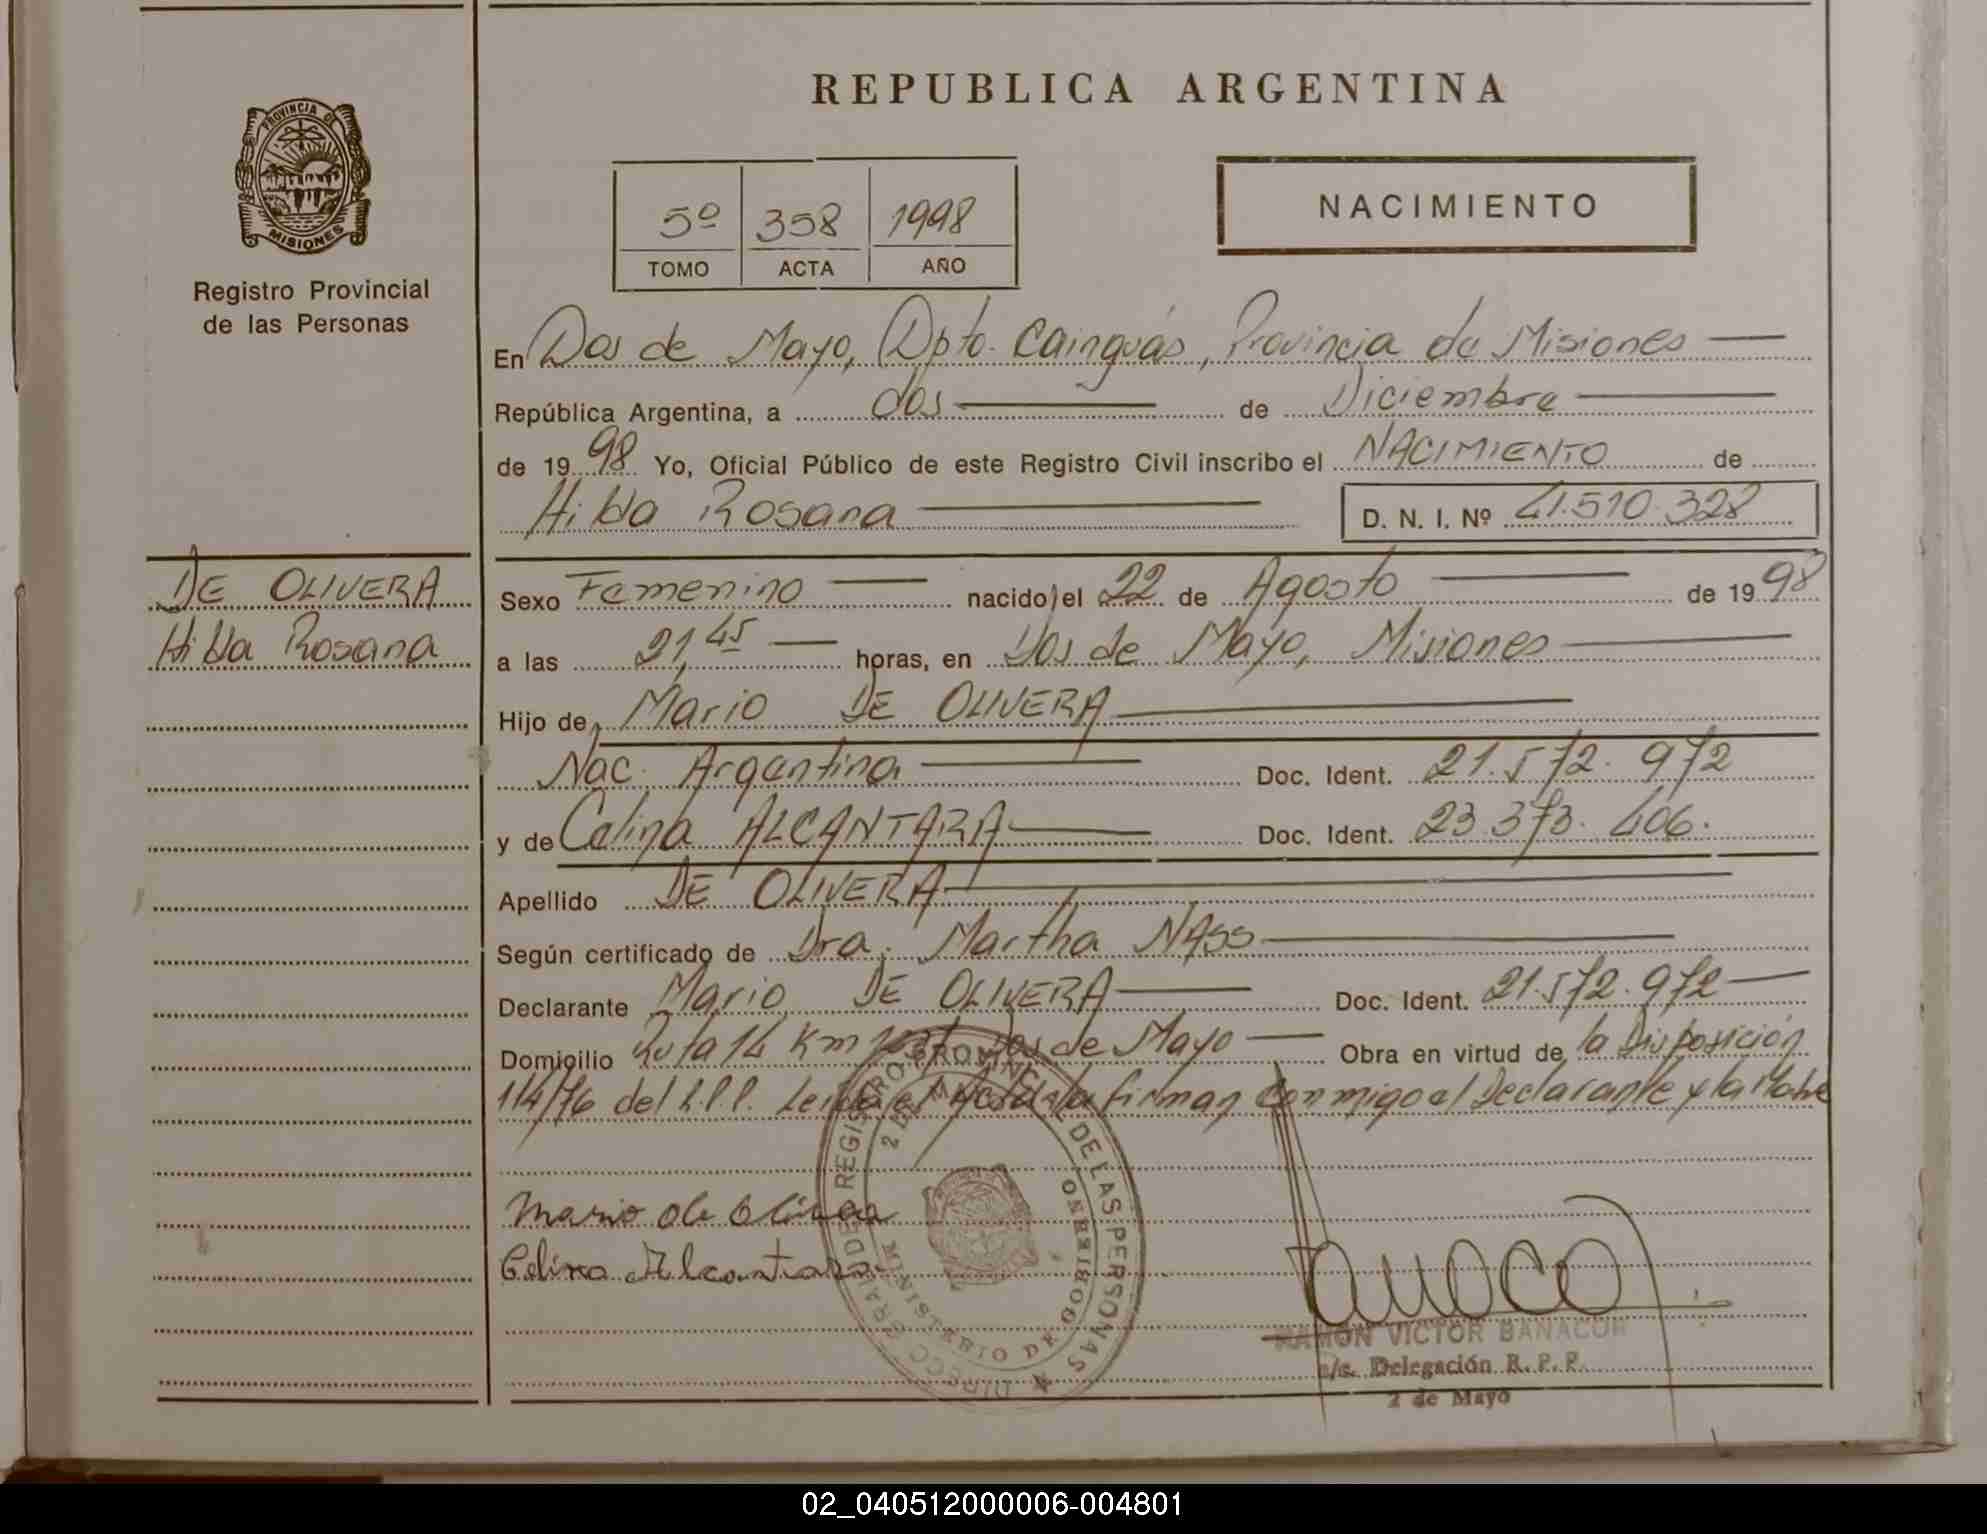 REPUBLICA ARGENTINA
PROVINCIA DE
MISIONES
Registro Provincial
de las Personas
5º 358 1998
TOMO ACTA AÑO
NACIMIENTO
En Dos de Mayo, Dpto. Cainguás, Provincia de Misiones
República Argentina, a dos de Diciembre
de 1998 Yo, Oficial Público de este Registro Civil inscribo el NACIMIENTO de
Hilda Rosana D. N. I. Nº 41.510.328
DE OLIVERA
Hilda Rosana
Sexo Femenino nacido el 22 de Agosto de 1998
a las 21,45 horas, en Dos de Mayo, Misiones
Hijo de Mario DE OLIVERA
Nac. Argentina Doc. Ident. 21.572.972
y de Celina ALCANTARA Doc. Ident. 23.373.406.
Apellido DE OLIVERA
Según certificado de Dra. Martha NASS
Declarante Mario DE OLIVERA Doc. Ident. 21.572.972
Domicilio Ruta 14 Km Dos de Mayo Obra en virtud de la Disposición
114/76 del R.P.P. Leída el Acta la firman conmigo el Declarante y la Madre
Mario de Olivera
Celina Alcantara
DIRECC. GRAL. DE REGISTRO PROVINC. DE LAS PERSONAS
2 DE MAYO
MINISTERIO DE GOBIERNO
RAMON VICTOR BANACOR
a/c. Delegación R. P. P.
2 de Mayo
02_040512000006-004801